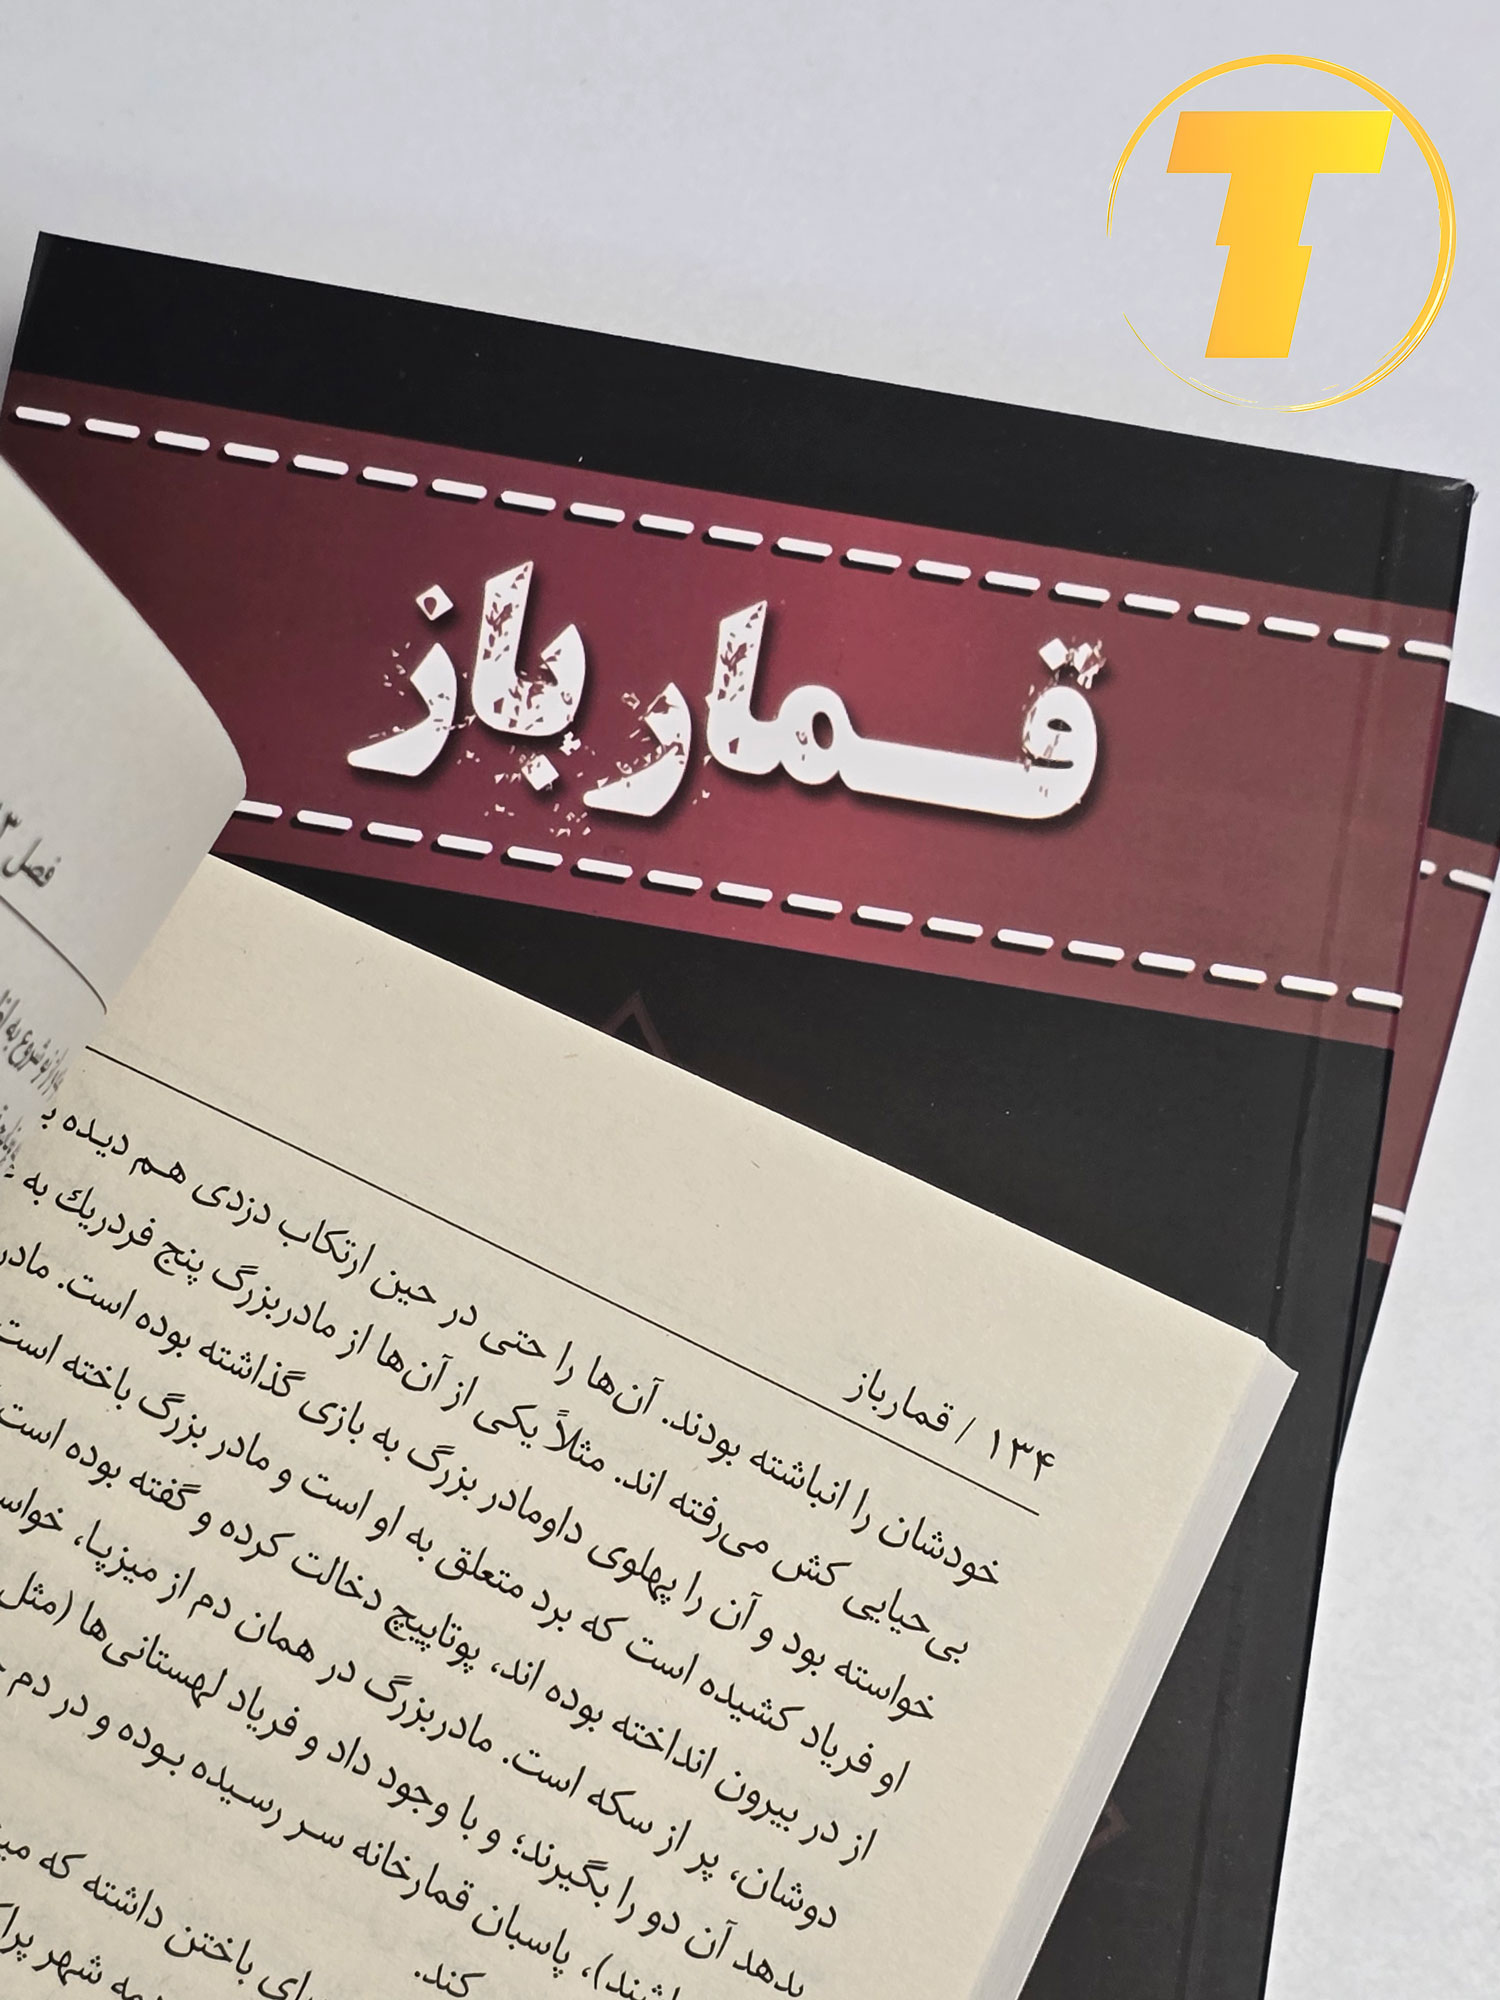 T
قمارباز
فصل ۱۳
۱۳۴ / قمارباز
خودشان را انباشته بودند. آن‌ها را حتی در حین ارتکاب دزدی هم دیده
بی‌حیایی کش می‌رفته اند. مثلاً یکی از آن‌ها از مادربزرگ پنج فردریك به
خواسته بود و آن را پهلوی داومادر بزرگ به بازی گذاشته بوده است. مادر
او فریاد کشیده است که برد متعلق به او است و مادر بزرگ باخته است
از در بیرون انداخته بوده اند، پوتاپیچ دخالت کرده و گفته بوده است
دوشان، پر از سکه است. مادربزرگ در همان دم از میزپا، خواس
بدهد آن دو را بگیرند؛ و با وجود داد و فریاد لهستانی‌ها (مثل
باشند)، پاسبان قمارخانه سر رسیده بوده و در دم
کند.
باختن داشته که
شهر